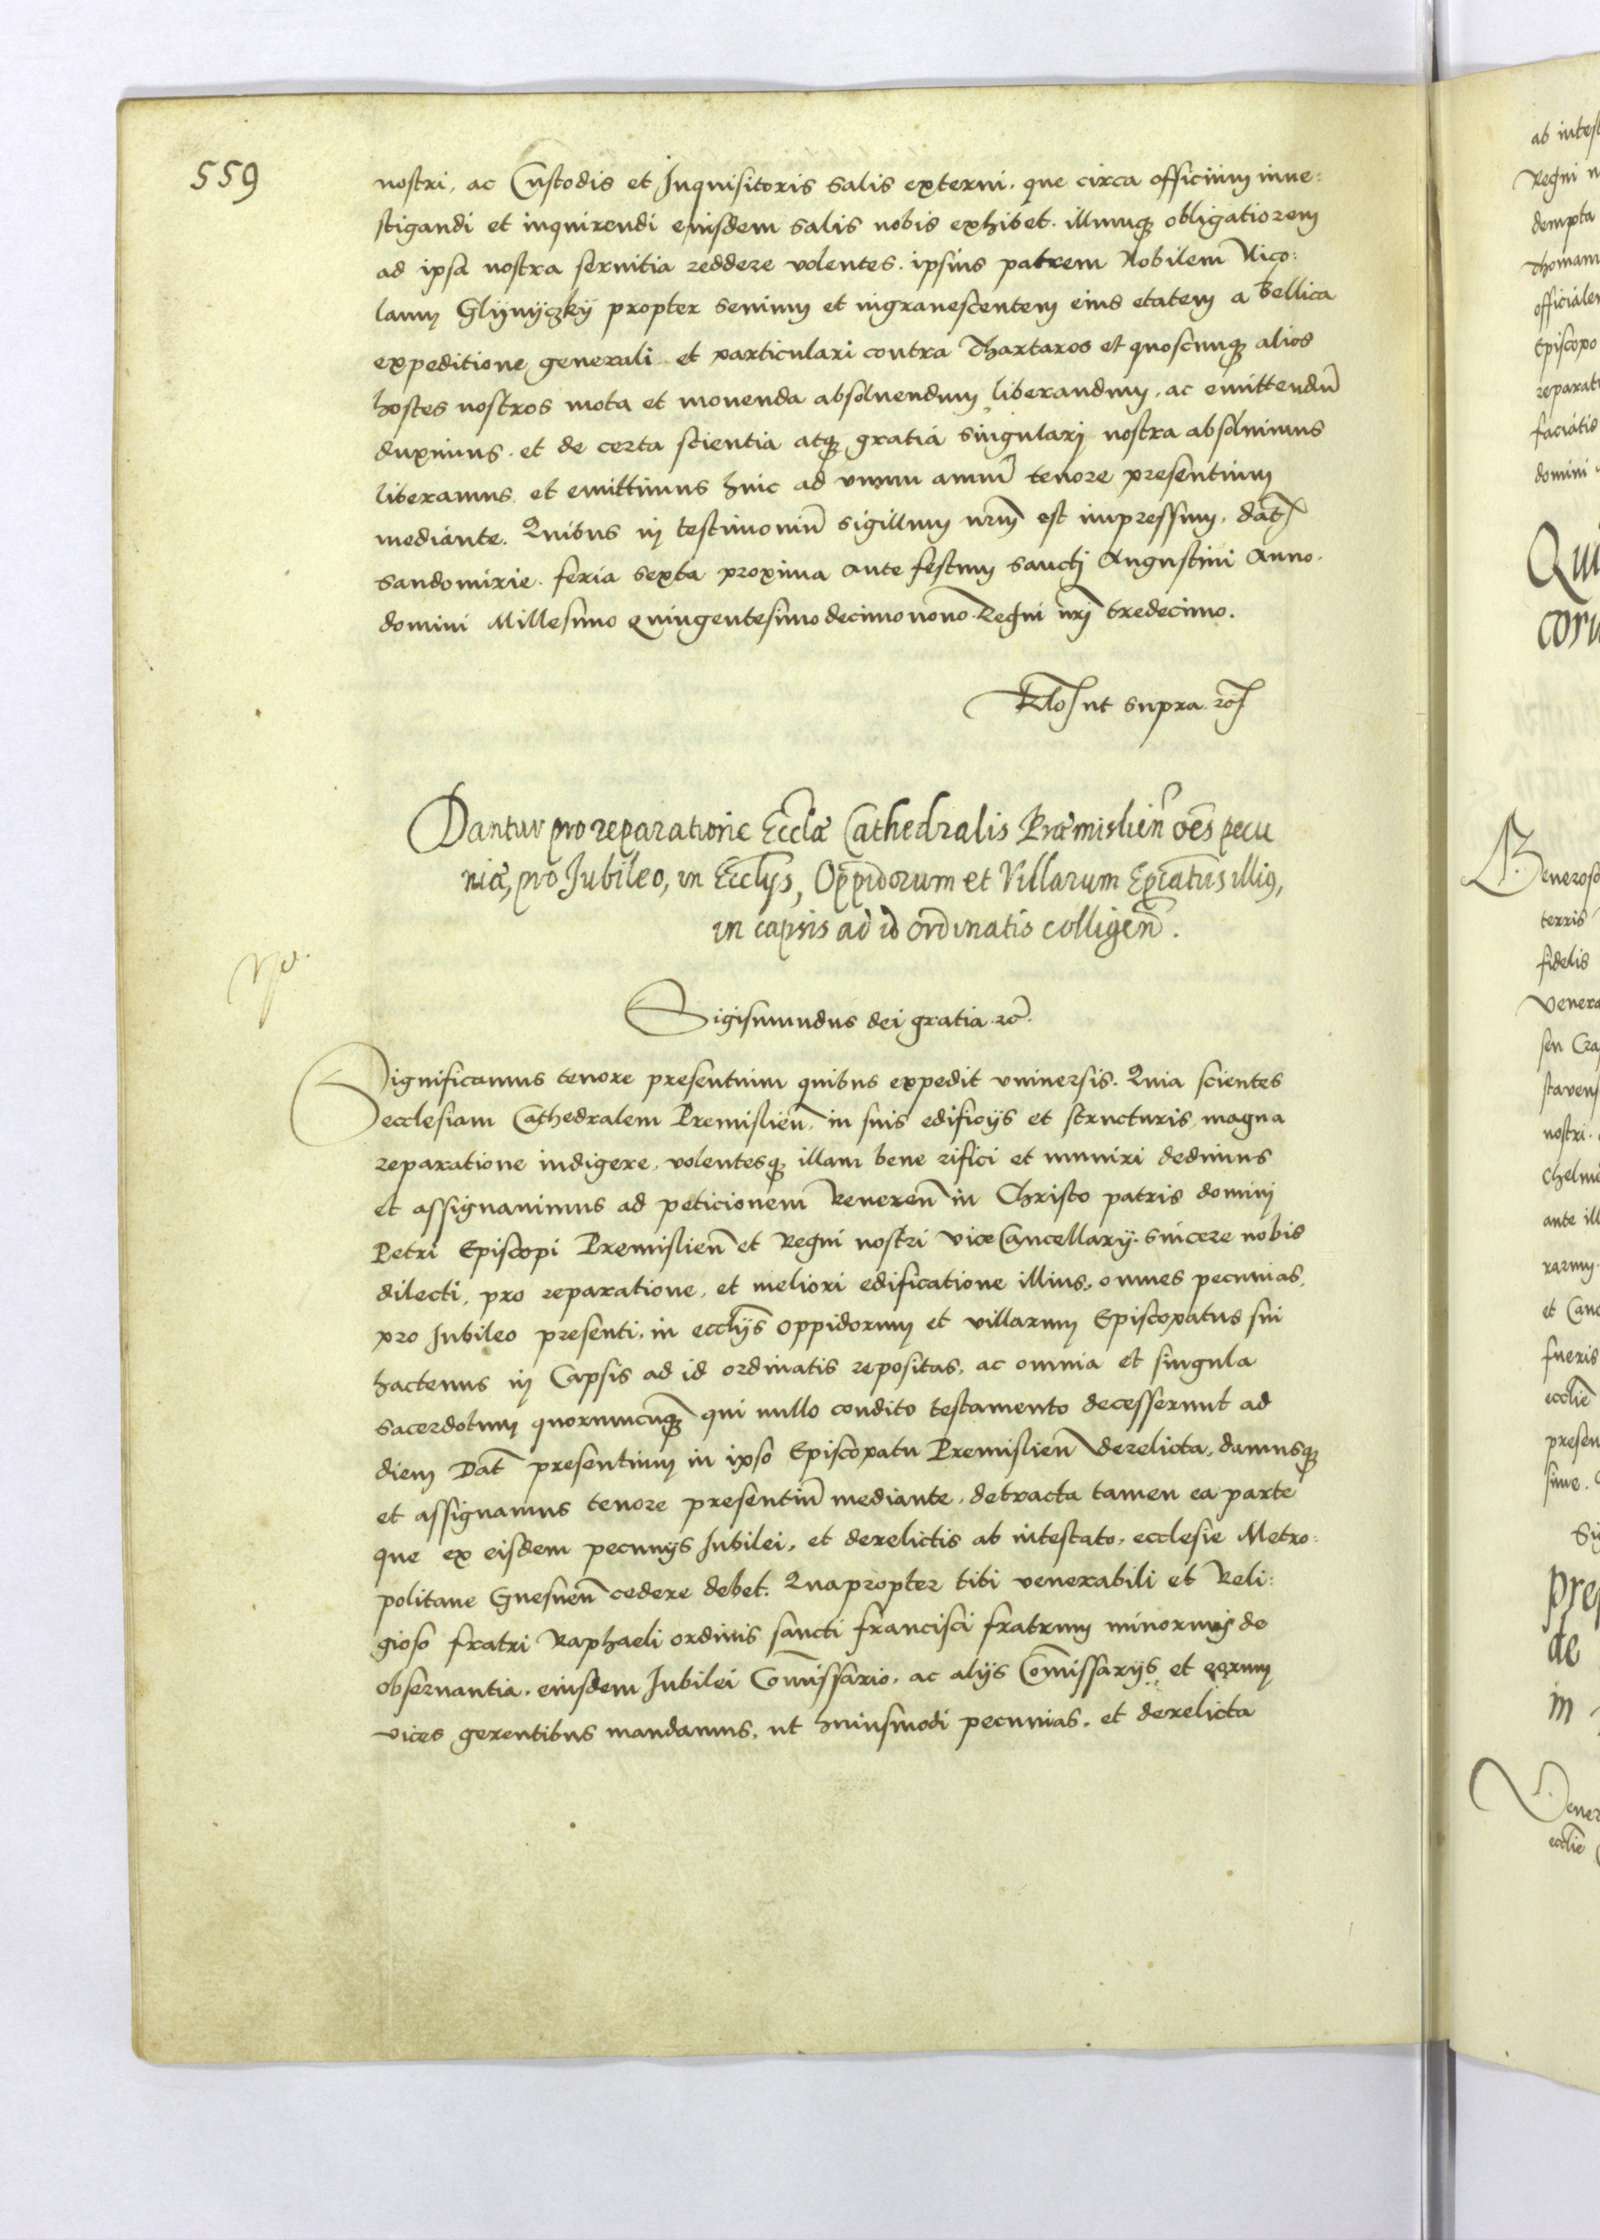 559
nostri, ac Custodis et Inquisitoris salis externi, que circa officium inue:
stigandi et inquirendi eiusdem salis nobis exhibet. illumq obligatiorem
ad ipsa nostra seruitia reddere volentes. ipsius patrem Nobilem Nico:
laum Glynyczky propter senium et ingrauescentem eius etatem a bellica
expeditione generali et particulari contra Thartaros et quoscunq alios
hostes nostros mota et mouenda absoluendum liberandum, ac emittendū
duximus. et de certa scientia atq gratia singulari nostra absoluimus
liberamus et emittimus hinc ad vnum annū tenore presentium
mediante. Quibus in testimoniū sigillum nrm̄ est impressum. dat̄
Sandomirie. feria sexta proxima ante festum sancti Augustini Anno.
domini Millesimo Quingentesimo decimonono Regni nr̄i tredecimo.
Rlo ut supra. rc̄
Dantur pro reparatione Eccl̄æ Cathedralis Præmislien̄ oēs pecu
niæ, pro Jubileo, in Eccl̄ijs, Oppidorum et Villarum Ep̄iatus illiq,
in capsis ad id ordinatis colligen̄.
Sigismundus dei gratia. rc̄.
Significamus tenore presentium quibus expedit vniuersis. Quia scientes
ecclesiam Cathedralem Premislien̄, in suis edificijs et structuris magna
reparatione indigere, volentesq illam bene rifici et muniri dedimus
et assignauimus ad peticionem Reueren̄ in Christo patris domini
Petri Episcopi Premislien̄ et Regni nostri viceCancellarij. sincere nobis
dilecti, pro reparatione, et meliori edificatione illius, omnes pecunias,
pro Jubileo presenti, in eccl̄ijs oppidorum et villarum Episcopatus sui
hactenus in Capsis ad id ordinatis repositas, ac omnia et singula
sacerdotum quorumcunq qui nullo condito testamento decesserunt ad
diem Dat̄ presentium in ipso Episcopatu Premislien̄ derelicta, damusq
et assignamus tenore presentiū mediante, detracta tamen ea parte
que ex eisdem pecunijs Jubilei, et derelictis ab intestato, ecclesie Metro:
politane Gnesnen̄ cedere debet. Quapropter tibi venerabili et Reli:
gioso fratri Raphaeli ordinis sancti francisci fratrum minorum de
obseruantia, eiusdem Jubilei Com̄issario, ac alijs Com̄issarijs et eorum
vices gerentibus mandamus, ut huiusmodi pecunias, et derelicta